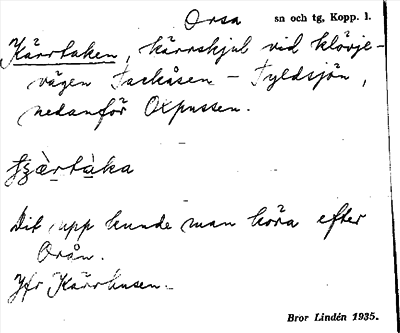 Orsa sn och tg, Kopp. l.
Kärrtaken, kärrskjul vid klövje-
vägen Täckåsen - Fyldsjön,
nedanför Oxpussen.
Dit upp kunde man köra efter
Orån.
Jfr Kärrhusen.
Bror Lindén 1935.